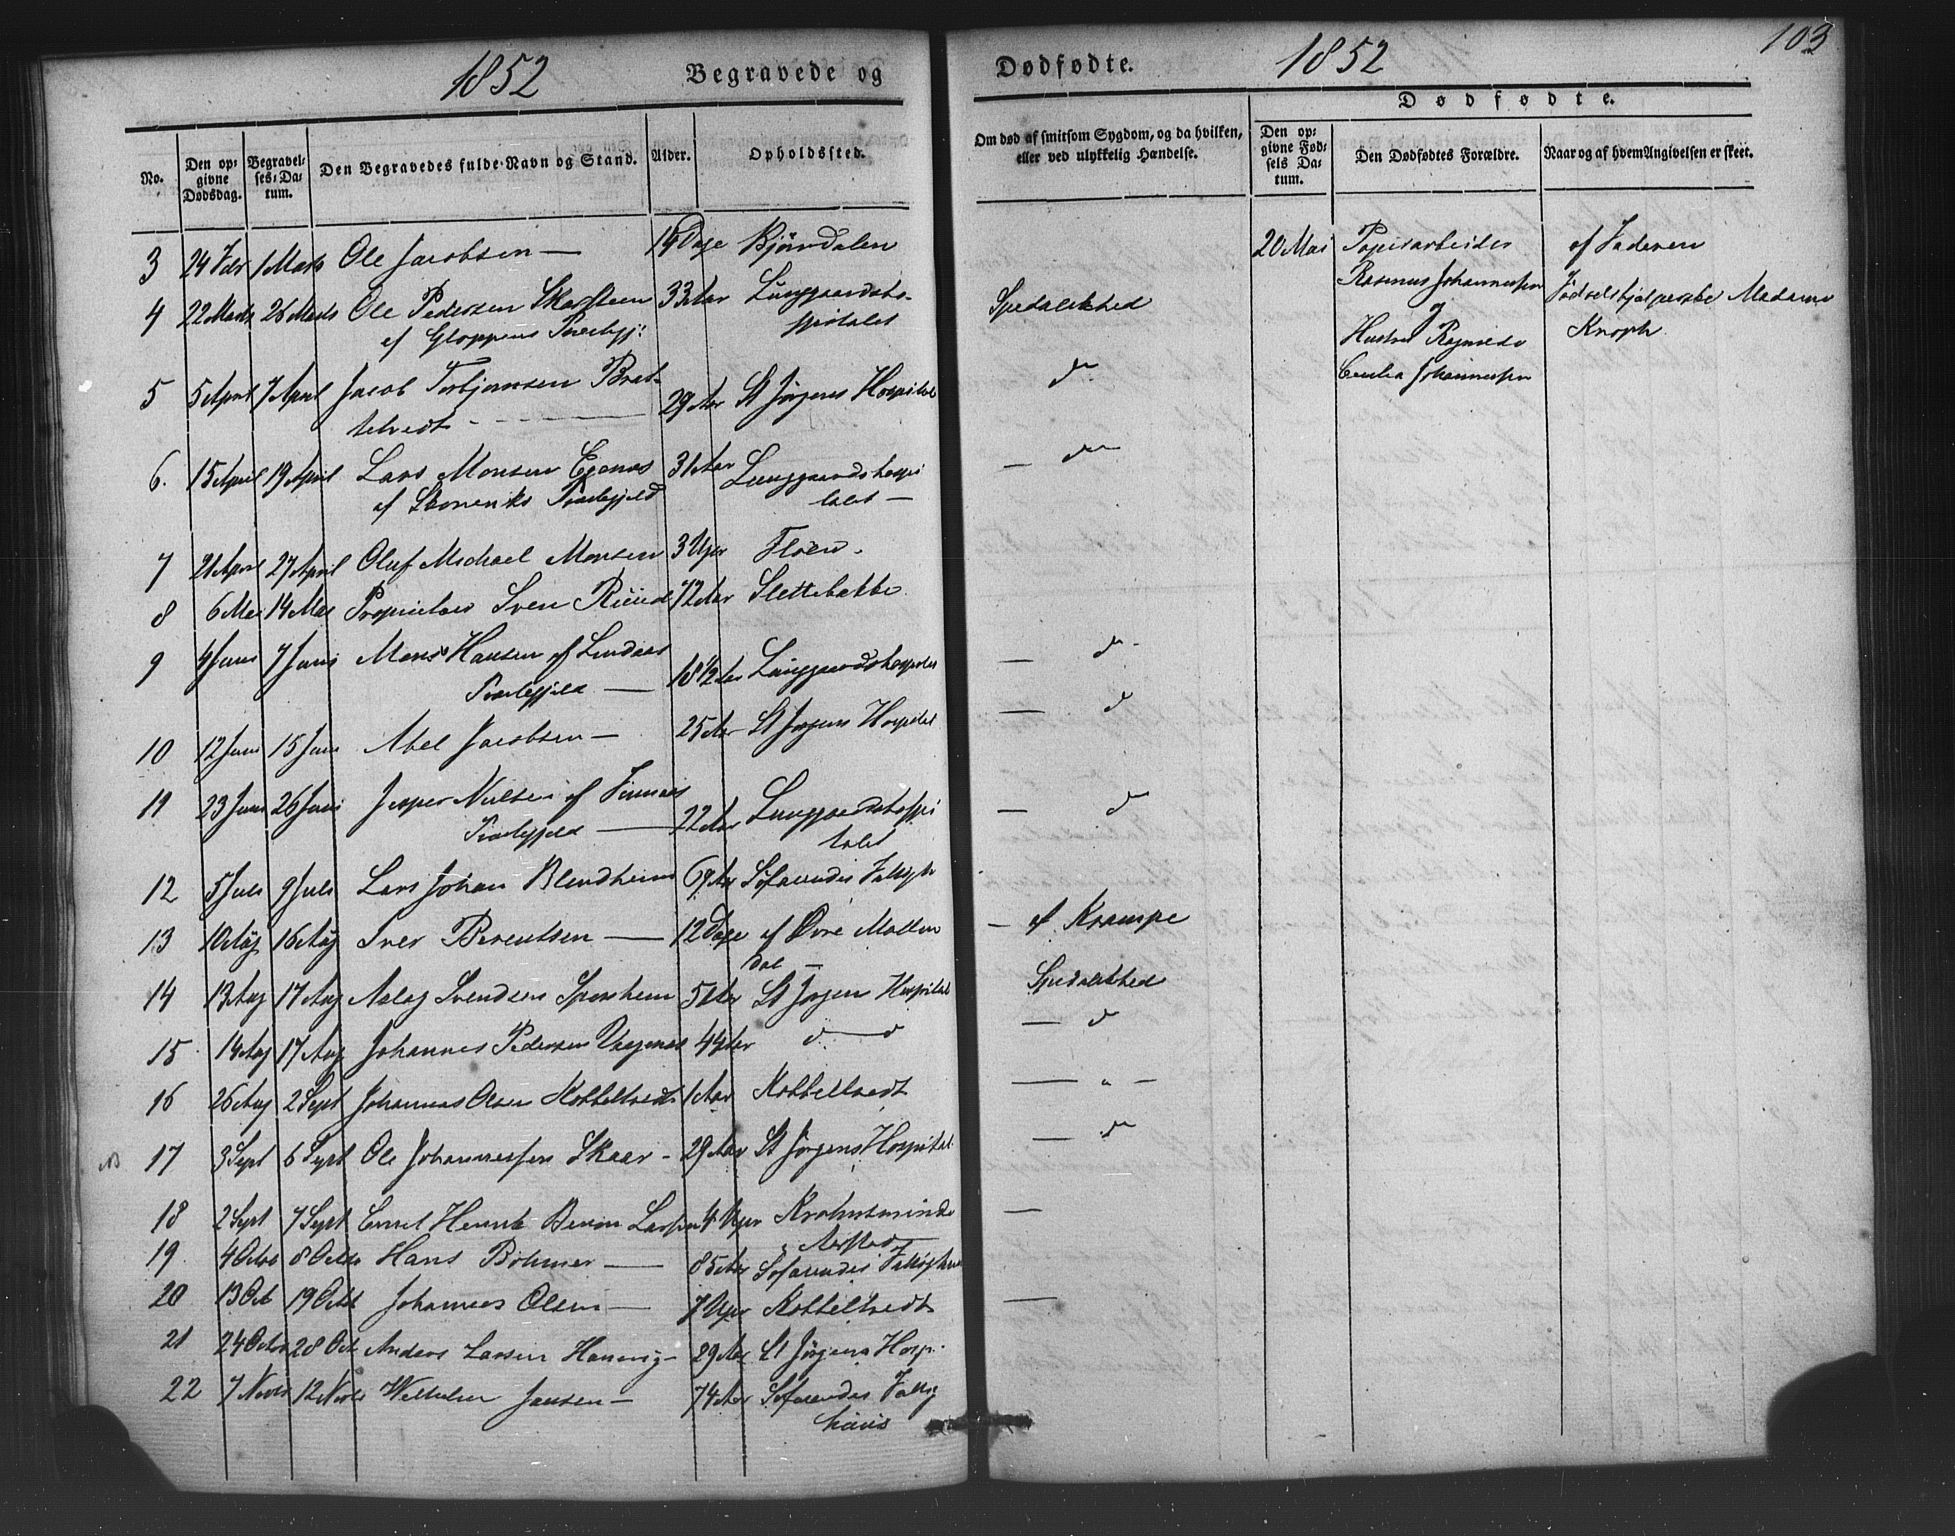 1852 Begravede og
Dødfødte. 1852 103
No.
Den op=
givne
Dødsdag.
Begravel=
ses=Da=
tum.
Den Begravedes fulde Navn og Stand.
Alder.
Opholdssted.
Om død af smitsom Sygdom, og da hvilken,
eller ved ulykkelig Hændelse.
Dødfødte.
Den op=
givne Fød=
sels Da=
tum.
Den Dødfødtes Forældre.
Naar og af hvem Angivelsen er skeet.
3 24 Febr 1 Marts Ole Jacobsen — 14 Dage Björndalen
4 22 Marts 26 Marts Ole Pedersen Skarsteen 33 Aar Lungaardsho-
af Gloppens Præstegj: spitalet
Spedalskhed
5 5 April 7 April Jacob Torbjørnsen Bret-
telvedt 29 Aar St Jørgens Hospital
do
6. 15 April 19 April Lars Monsen Egenæs 31 Aar Lunggaardshospi
af Skoneviks Præstegjeld talet —
— do
7 21 April 27 April Oluf Michael Monsen 3 Uger Fløen.
8 6 Mai 14 Mai Proprietair Sven 72 Aar Slettebakke
9 4 Juni 7 Juni Mons Hansen af Lindaas
Præstegjeld — 18 1/2 Aar Lunggaardshospitalet
— do
10 12 Juni 15 Juni Abel Jacobsen — 25 Aar St Jørgens Hospital
— do
11 23 Juni 26 Juni Jesper Nielsen af Finnaas
Præstegjeld — 22 Aar Lunggaardshospi
talet
— do
12 5 Juli 9 Juli Lars Johan Blendheim 69 Aar Søfarendes Fattigh
13 10 Aug 16 Aug Iver Berentsen — 12 Dage af Øvre Mollen
dal —
— af Krampe
14 13 Aug 17 Aug Aslag Svendsen Sperrheim 51 Aar St Jørgen Hospital
Spedalskhed
15 14 Aug 17 Aug Johannes Pedersen Vaagenæs 44 Aar do — do
— do
16 26 Aug 2 Sept Johannes Olsen Kobbeltvedt 1 Aar Kobbeltvedt
— " —
17 3 Sept 6 Sept Ole Johannessen Skaar — 29 Aar St Jørgens Hospital
— do
18 2 Sept 7 Sept Emil Henrik Larsen 4 Uger Krohnsminde
i Aarstad
—
19. 4 Octbr 8 Octbr Hans Böhmer — 85 Aar Søfarendes Fattighuus
20 13 Oct 19 Octbr Johannes Olsen — 7 Uger Kobbeltvedt
—
21 24 Octbr 28 Oct Anders Larsen Hannevig — 29 Aar St Jørgens Hosp.
22 7 Novbr 12 Novbr Wilhelm Jansen — 74 Aar Søfarendes Fattig
huus
20 Mai Papirarbeider af Faderen
Rasmus Johannessen Jødselshjelperske Madame
og Knoph
Hustru
Cecilia Johannessen